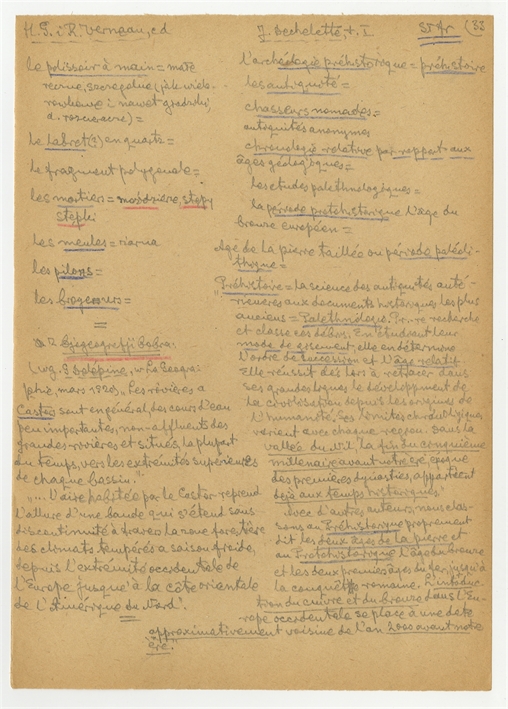 H. S. i R. Verneau, cd
le polissoir à main = małe
ręczne,
le labret (?) en quartz =
le fragment polygonale =
les mortier = moździerze, stępy
stępki
les meules = żarna
les pilons =
les broyeurs =
=
Z Geografji Bobra.
(wg. , w "La Géogra-
phie, mars 1920) "Les rivières à
Castor sont en général, des cours d'eau
peu importantes, non-affluents des
grandes rivières et situés, la plupart
du temps, vers les extrémités supérieures
de chaque bassin."
"... L'aire habitée par le Castor reprend
l'allure d'une bande qui s'étend sans
discontinuité à travers la zone forestière
des climats tempérés a saison froide,
depuis l'extrémité occidentale de
l'Europe jusqu'à la côte orientale
de l'Amérique du Nord".
J. Dechelette, t. I
33
L'archéologie préhistorique = préhistoire
les antiquité =
chasseurs nomades =
antiquités anonymes
chronologie relative par rapport aux
âges géologiques =
les études palethnologiques =
la période protohistorique l'âge du
bronze européen =
Age de la pierre taillée ou période paléoli-
thique =
"Préhistoire = la science des antiquités anté-
rieures aux documents historiques les plus
anciens = Palethnologie. recherche
et classe ces débris. En étudiant leur
mode de gisement, elle en détermine
l'ordre de succession et l'âge relatif.
Elle réussit dès lors à retracer dans
ses grandes lignes le développement de
la civilisation depuis les origines de
l'humanité. Ses limites chronologiques
varient avec chaque région. Dans la
vallée du Nil, la fin du cinquième
millénaire avant notre ère, époque
des premières dynasties, appartient
déjà aux temps historiques."
"Avec d'autres auteurs, nous clas-
sons au Préhistorique proprement
dit les deux âges de la pierre et
au Protohistorique l'âge du bronze
et les deux premiers âges du fer, jusqu'à
la conquête romaine. L'introduc-
tion du cuivre et du bronze dans l'Eu-
rope occidentale se place à une date
approximativement voisine de l'an 2000 avant notre
ère."